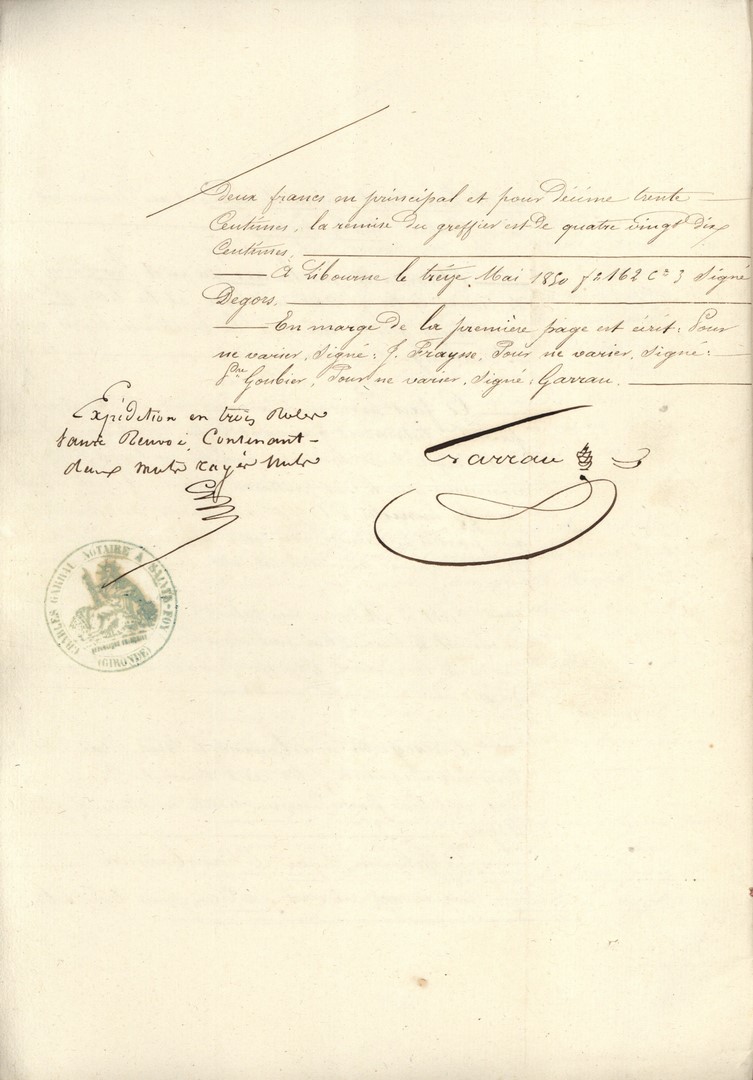 deux francs en principal et pour Décime trente
Centimes, la remise du greffier est de quatre vingt dix
Centimes.
A Libourne le treize Mai 1850 fo 162 Ce 3 Signé
Degors.
En marge de la première page est écrit : Pour
ne varier, Signé : J. Frayse, Pour ne varier, Signé :
Goubier, Pour ne varier, Signé : Garrau.
Expédition en trois Roles
Sans Renvoi, Contenant
deux mots rayés nuls
Garrau
CHARLES GARRAU NOTAIRE A SAINTE-FOY
(GIRONDE)